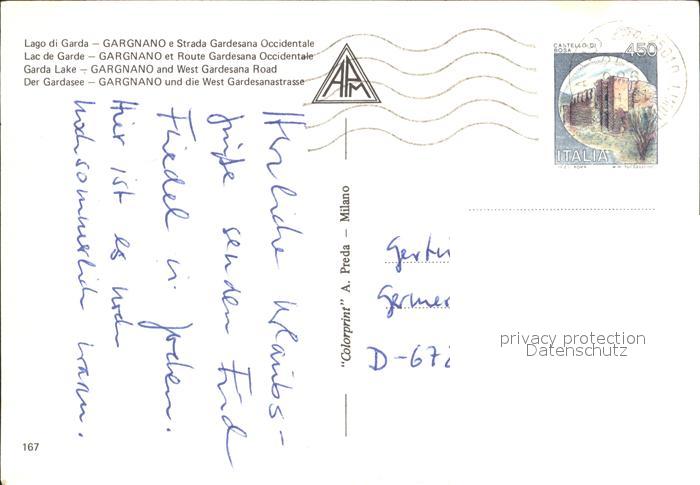 Lago di Garda – GARGNANO e Strada Gardesana Occidentale
Lac de Garde – GARGNANO et Route Gardesana Occidentale
Garda Lake – GARGNANO and West Gardesana Road
Der Gardasee – GARGNANO und die West Gardesanastrasse
CASTELLO DI
ROSA
450
ITALIA
Herzliche Urlaubs-
grüße senden
Friedel u. Jochen.
Hier ist es noch
hochsommerlich warm.
"Colorprint" A. Preda – Milano
D-672
privacy protection
Datenschutz
167